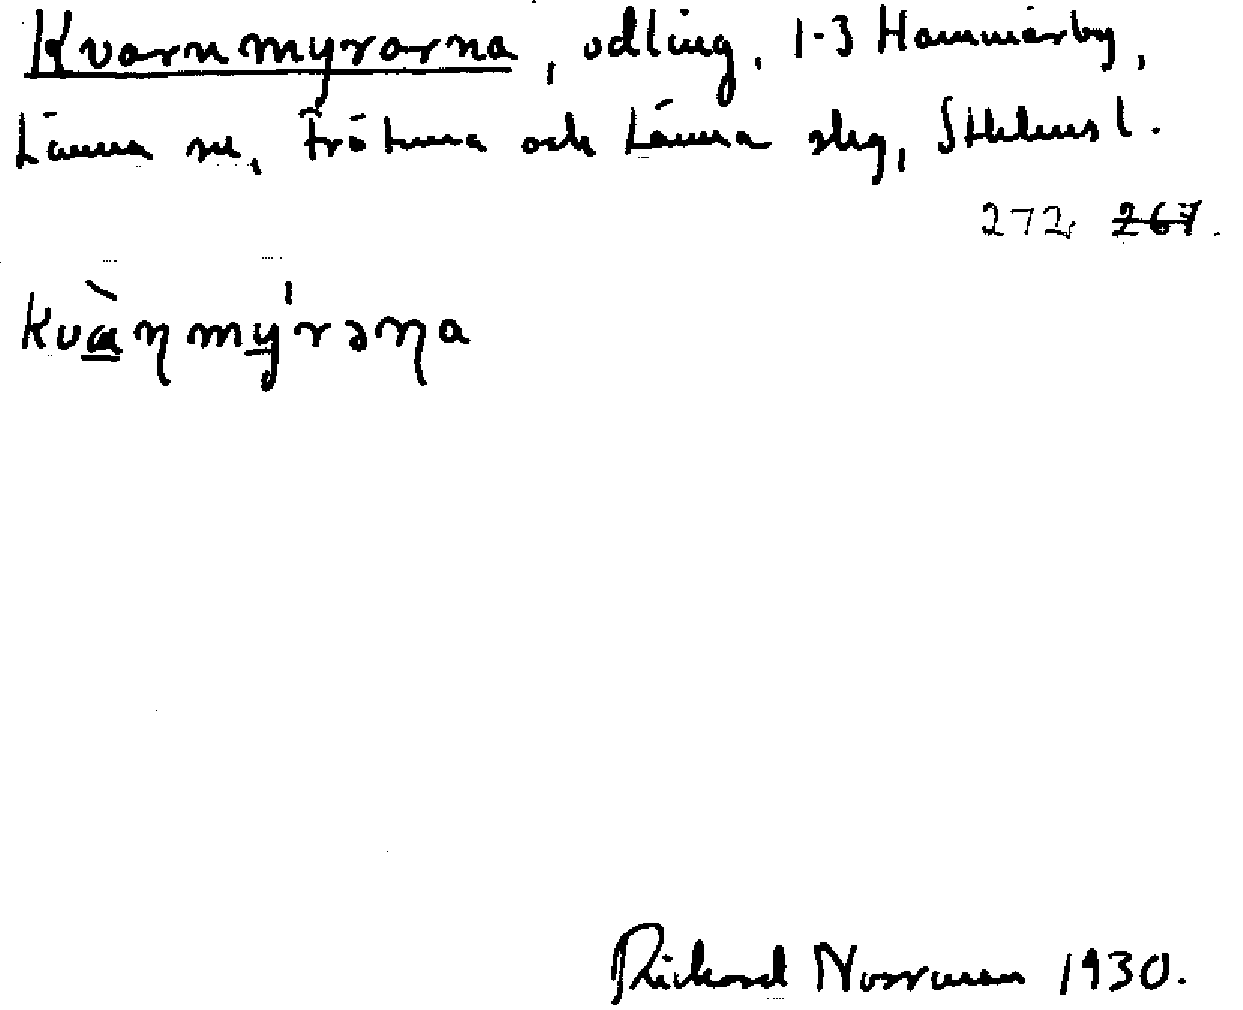 Kvarnmyrarna, odling, 1-3 Hammarby,
Länna sn, Frötuna och Länna skg, Sthlms l.
272 267.
kvàɳmy'rəɳa
Rickard Norrman 1930.